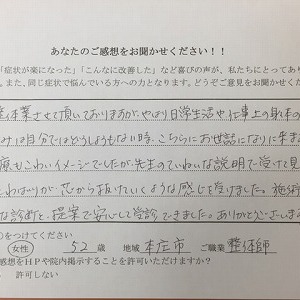 あなたのご感想をお聞かせください！！
「症状が楽になった」「こんなに改善した」など喜びの声が、私たちにとってあり
す。また、同じ症状で悩んでいる方への力となります。どうぞご意見をお聞かせく
整体業させて頂いておりますが、やはり日常生活や仕事上の身体の
みは自分ではどうしようもない時、こちらにお世話になりに来ま
療もこわいイメージでしたが先生のていねいな説明で受けて見
とわばりが芯から抜けていくような感じを受けました。施術
な診めた、提案で安心して受診できました。ありがとうございま
をつけてください
女性 52 歳 地域 本庄市 ご職業 整体師
感想をHPや院内掲示することを許可いただけますか？
許可しない